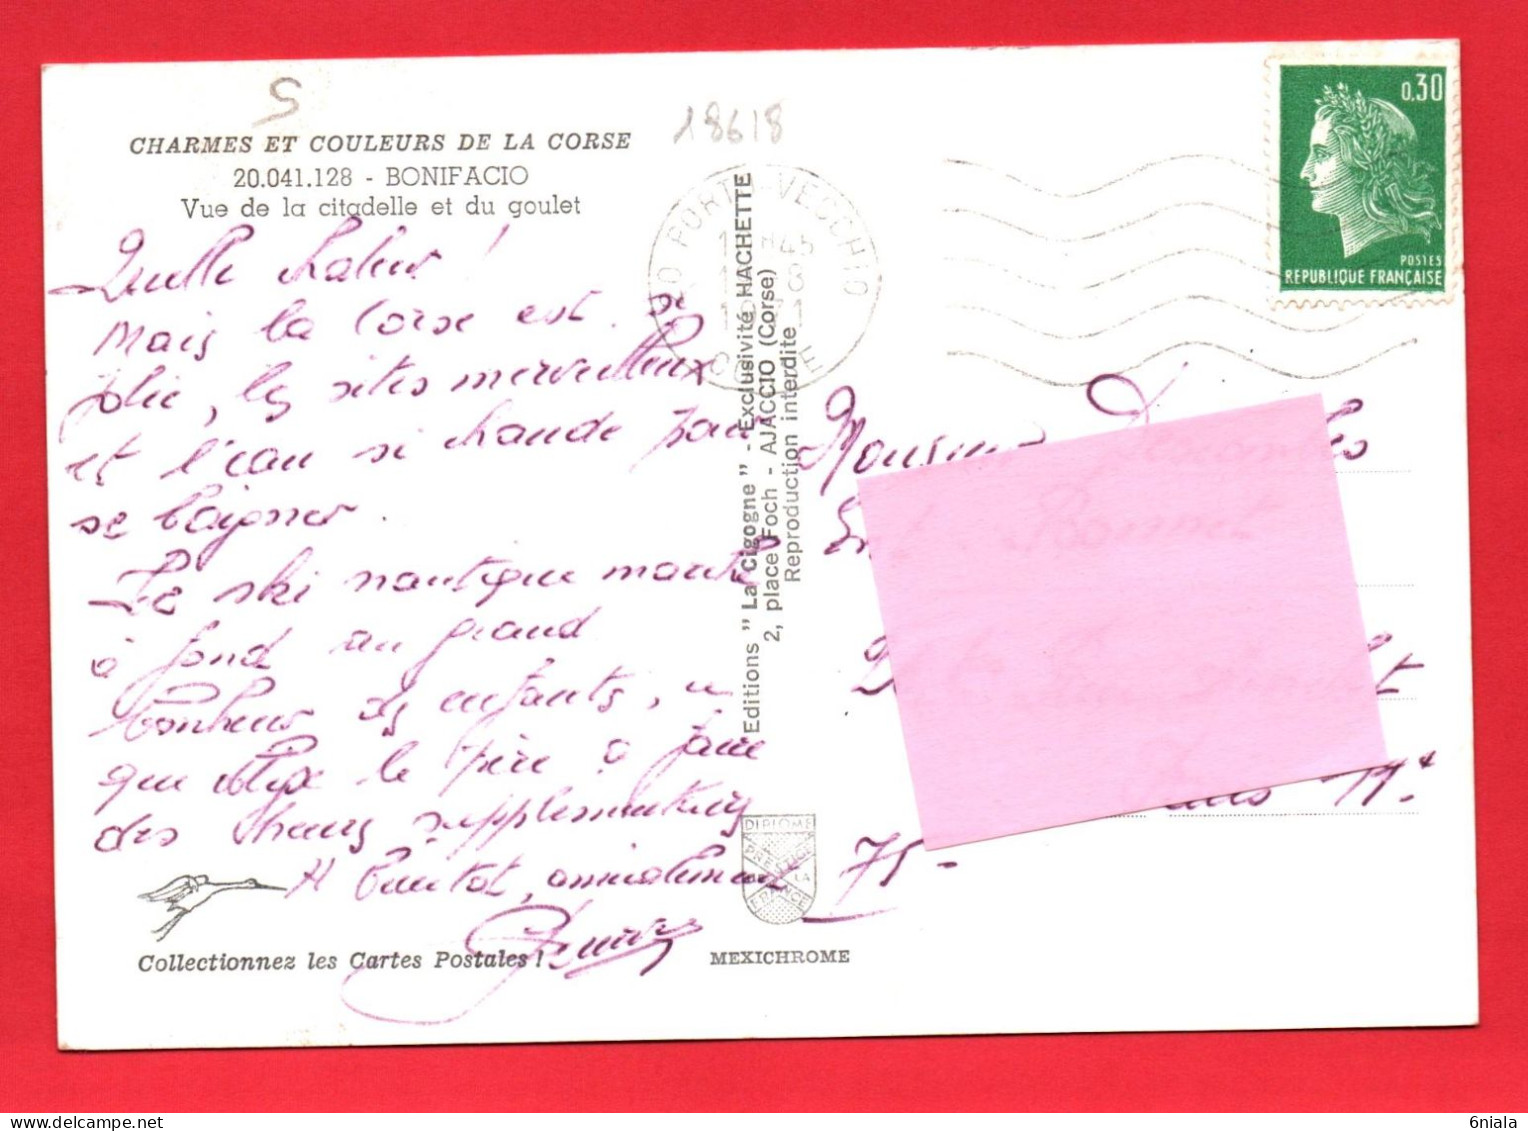 S
18618
CHARMES ET COULEURS DE LA CORSE
20.041.128 - BONIFACIO
Vue de la citadelle et du goulet
Quelle chaleur !
Mais la Corse est si
jolie, les sites merveilleux
et l'eau si chaude pour
se baigner.
Le ski nautique marche
à fond au grand
bonheur des enfants,
que le père à faire
des heures supplémentaires
A bientôt, amicalement
Collectionnez les Cartes Postales !
Editions " La Cigogne " - Exclusivité HACHETTE
2, place Foch - AJACCIO (Corse)
Reproduction interdite
DIPLOME
PRESTIGE
DE LA
FRANCE
MEXICHROME
20 PORTO-VECCHIO
H45
8
CORSE
0,30
POSTES
REPUBLIQUE FRANÇAISE
Monsieur
Paris
75 -
6niala